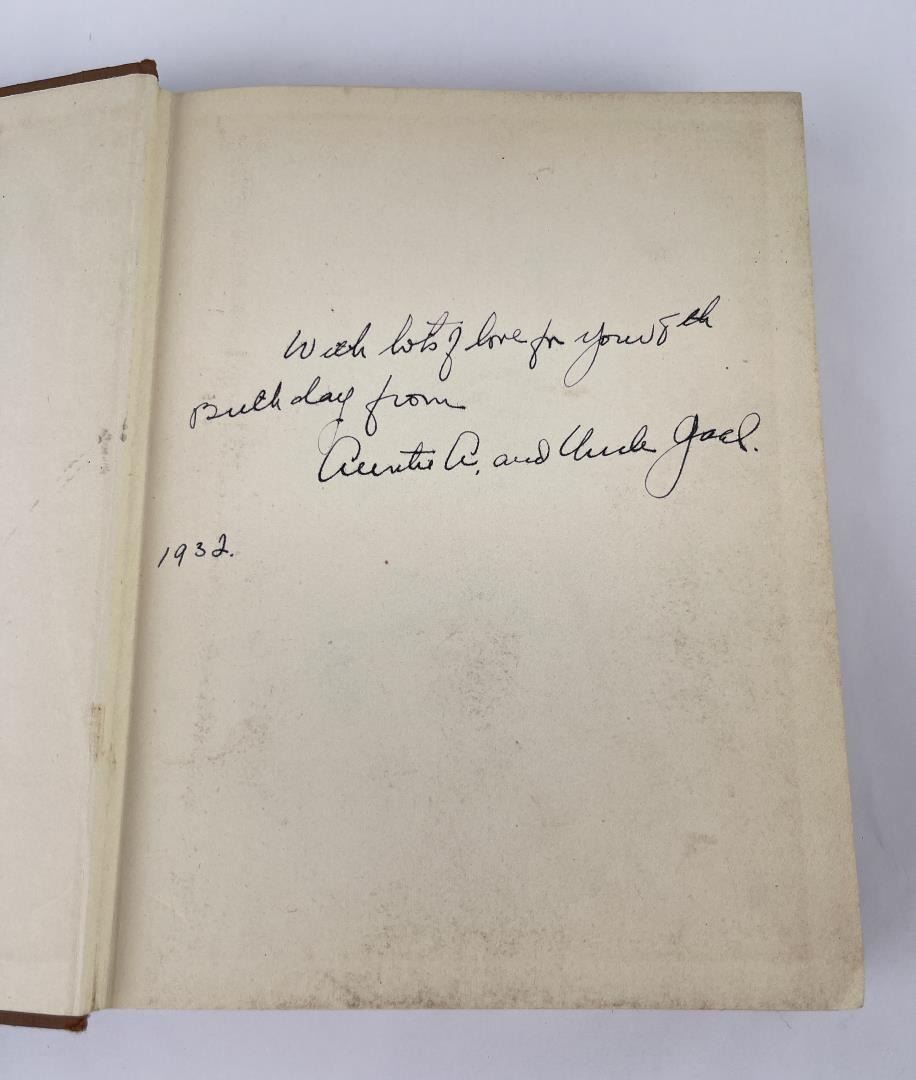 With lots of love for your 8th
Birthday from
Auntie A. and Uncle
1932.